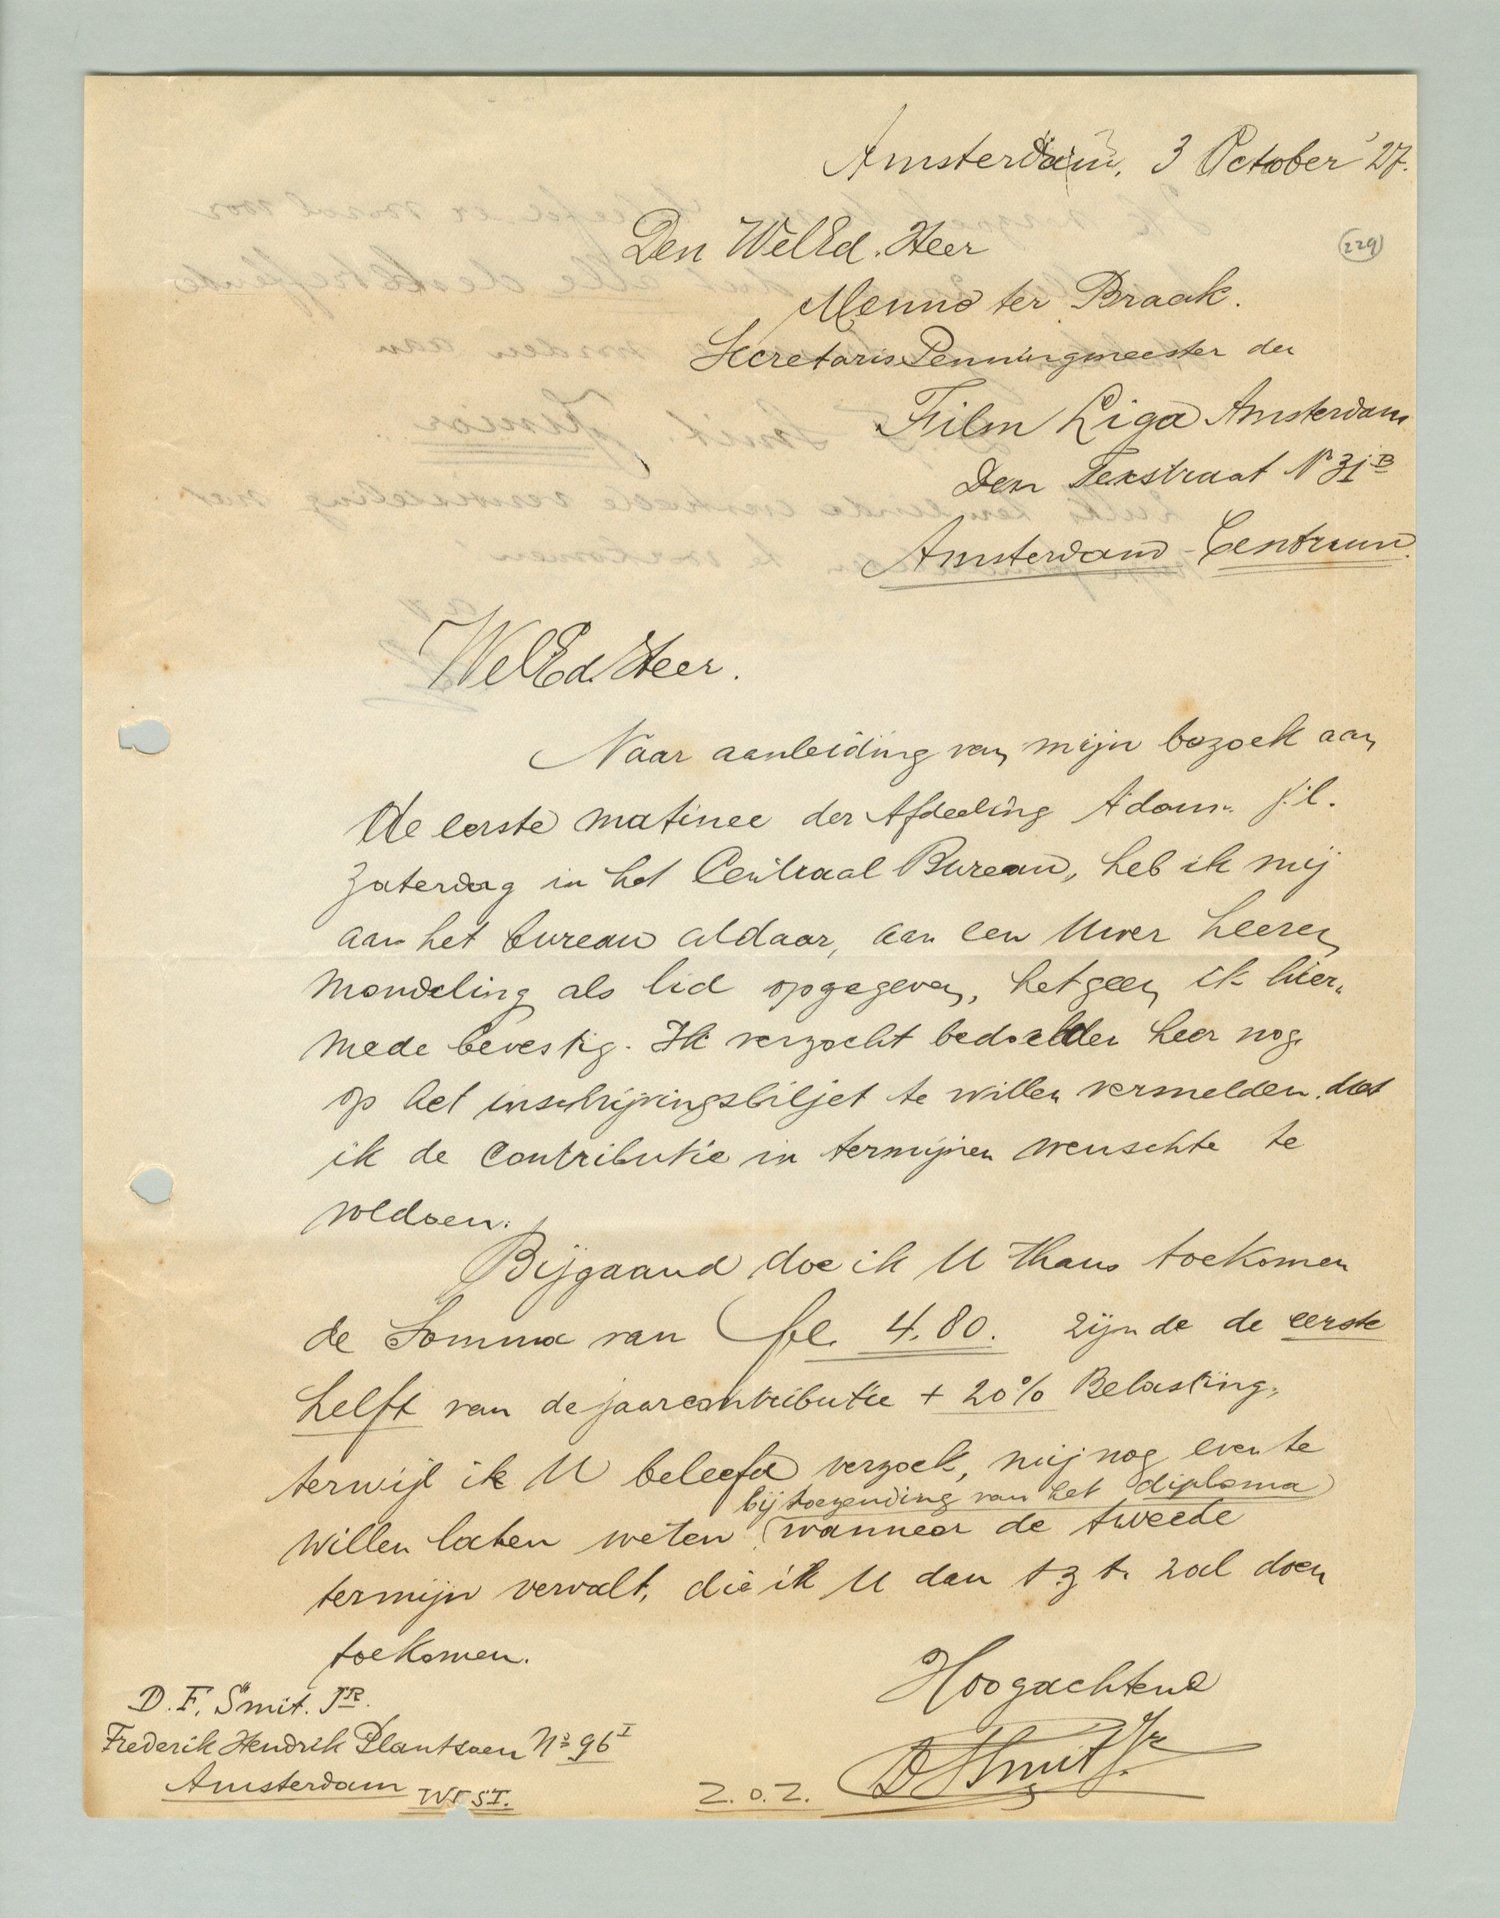 Amsterdam, 3 October '27.
229
Den WelEd. Heer
Menno ter Braak.
Secretaris Penningmeester der
Film Liga Amsterdam
Den Texstraat No 31B
Amsterdam-Centrum.
WelEd. Heer.
Naar aanleiding van mijn bezoek aan
de eerste matinee der Afdeeling A'dam. j.l.
Zaterdag in het Centraal Bureau, heb ik mij
aan het bureau aldaar, aan een Uwer heeren
mondeling als lid opgegeven, hetgeen ik hier-
mede bevestig. Ik verzocht bedoelden heer nog
op het inschrijvingsbiljet te willen vermelden dat
ik de contributie in termijnen wenschte te
voldoen.
Bijgaand doe ik U thans toekomen
de Somma van fl. 4.80. zijnde de eerste
helft van de jaarcontributie + 20% Belasting,
terwijl ik U beleefd verzoek, mij nog even te
bij toezending van het diploma
willen laten weten (wanneer de tweede
termijn vervalt, die ik U dan t.z.t. zal doen
toekomen.
Hoogachtend
D F Smit Jr
D. F. Smit. JR.
Frederik Hendrik Plantsoen No 96I
Amsterdam WEST.
Z.O.Z.